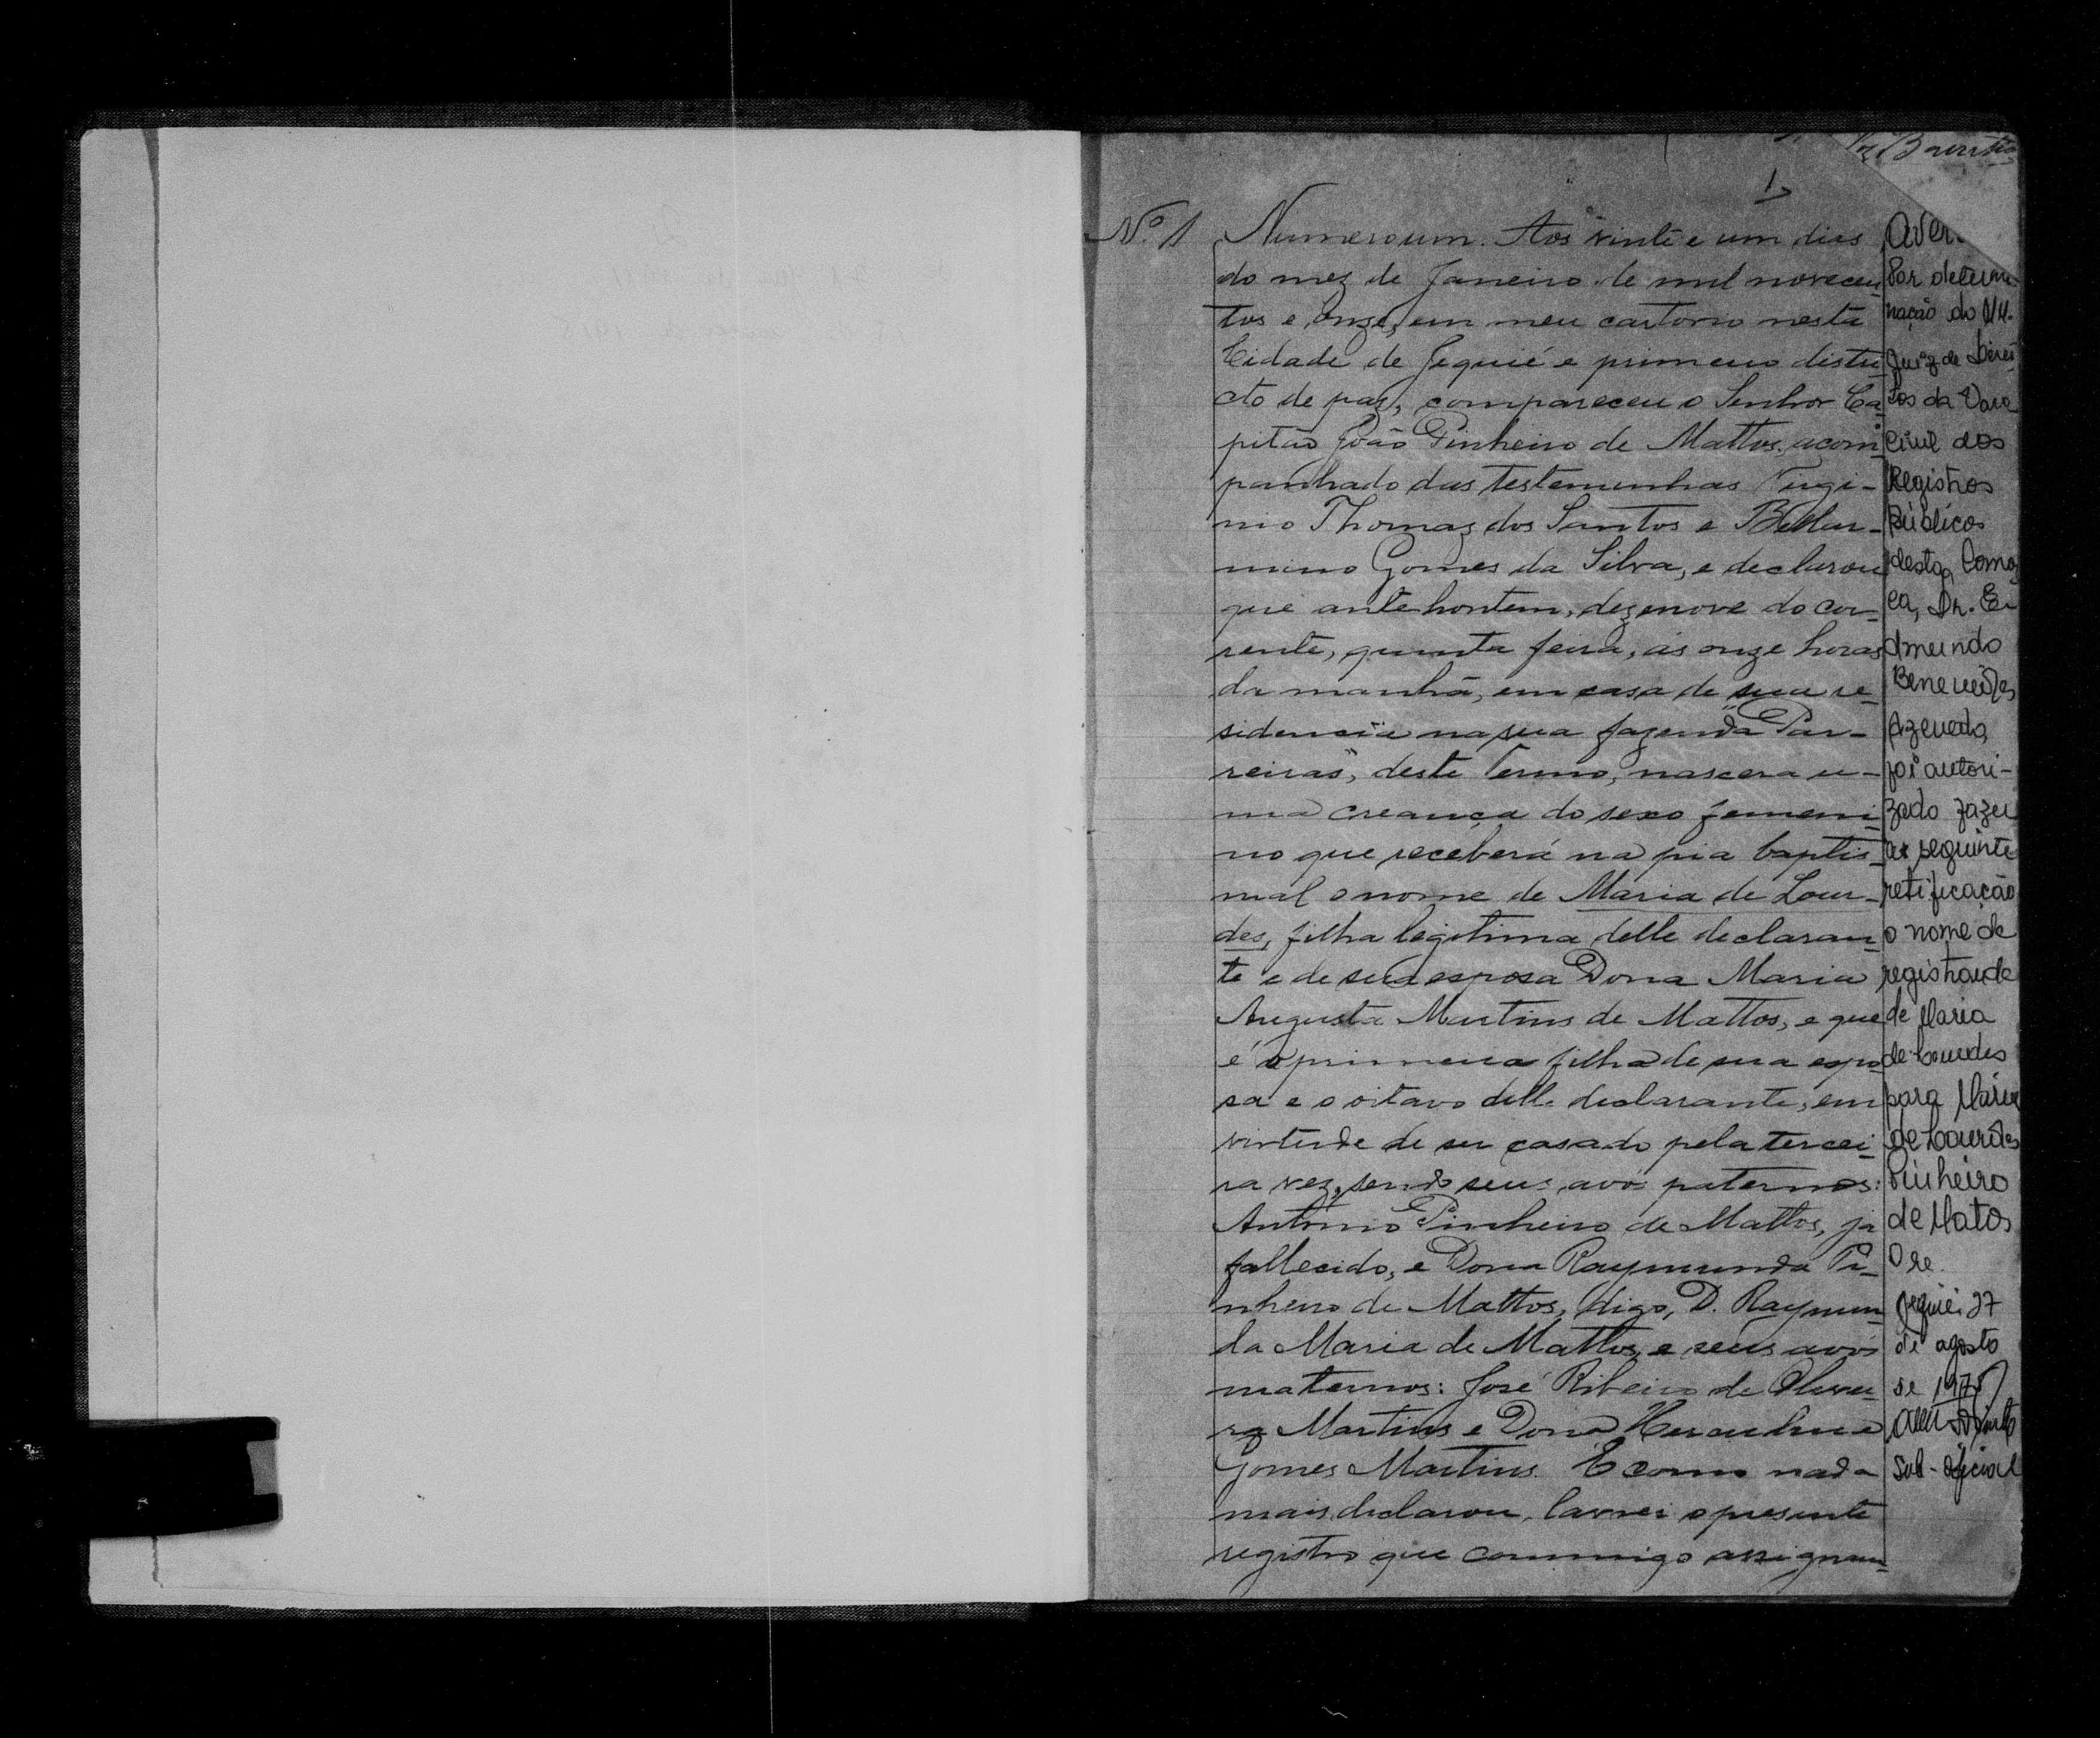 1
Nº 1
Numero um. Aos vinte e um dias
do mez de Janeiro de mil novecen-
tos e onze, em meu cartorio nesta
Cidade de Jequié e primeiro distri-
cto de paz, compareceu o Senhor Ca-
pitão João Pinheiro de Mattos, acom-
panhado das testemunhas Virgi-
nio Thomaz dos Santos e Bellar-
mino Gomes da Silva, e declarou
que antehontem, dezenove do cor-
rente, quinta feira, ás onze horas
da manhã, em casa de sua re-
sidencia na sua fazenda "Par-
reiras", deste Termo, nascera u-
ma creança do sexo femeni-
no que receberá na pia baptis-
mal o nome de Maria de Lour-
des, filha legitima delle declaran-
te e de sua esposa Dona Maria
Augusta Martins de Mattos, e que
é a primeira filha de sua espo-
sa e o oitavo delle declarante, em
virtude de ser casado pela tercei-
ra vez, sendo seus avós paternos:
Antonio Pinheiro de Mattos, já
fallecido, e Dona Raymunda Pi-
nheiro de Mattos, digo, D. Raymun-
da Maria de Mattos, e seus avós
maternos: José Ribeiro de Olivei-
ra Martins e Dona Herculina
Gomes Martins. E como nada
mais declarou, lavrei o presente
registro que commigo assignam-
Aver
Por determi-
nação do MM.
Juiz de Direi
tos da Vara
Civil dos
Registros
Públicos
desta Comar
ca, Dr. E
dmundo
Benevides
Azevedo,
foi autori-
zado fazer
a seguinte
retificação
o nome da
registrada
de Maria
de Lourdes
para Maria
de Lourdes
Pinheiro
de Matos
Jequié, 27
de agosto
de
Sub-oficial